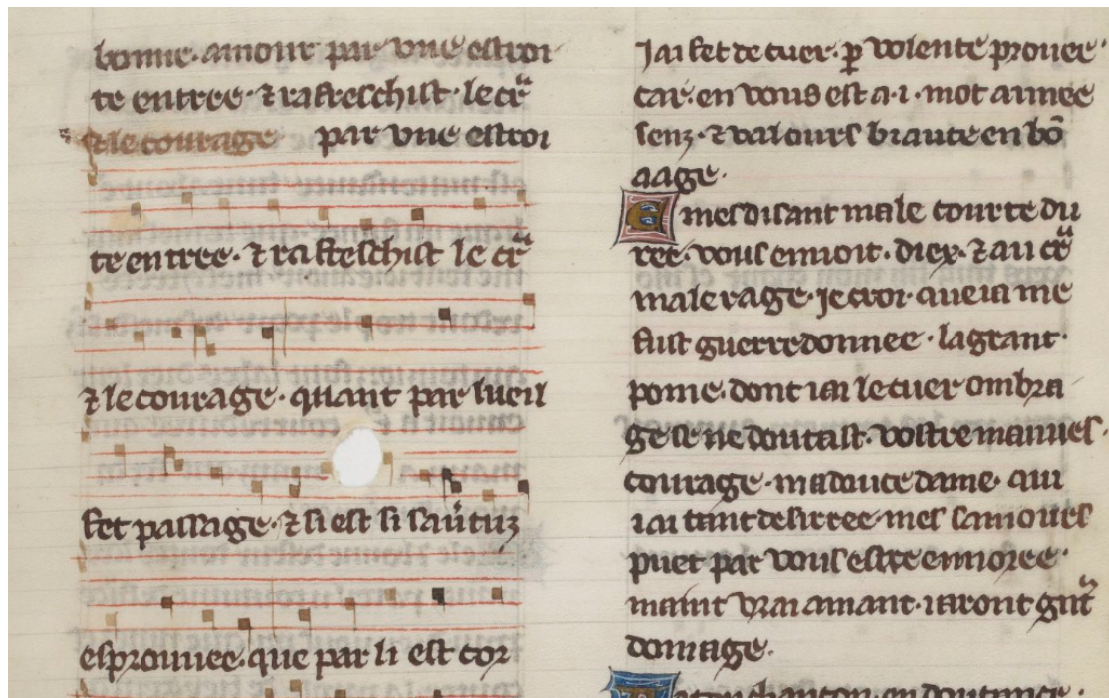 bonne·amour par vne estroi
te entree·⁊ rafreschist·le cue͛
⁊ le courage par vne estroi
te entree·⁊ rafreschist le cue͛
⁊ le courage·quant par lueil
fet passage·⁊ si est si sau͛tuz
esprouuee·que par li est cor
Jai fet de cuer·ꝑ volente prouee·
car·en vous est a·i·mot armee
senz·⁊ valours biaute en bō
aage·
E mesdisant male courte du
ree·vous enuoit·diex·⁊ au cue͛
male rage·ie croi·que ia me
fust guerredonnee·la grant·
pome·dont iai le cuer ombra
ge se ne doutast·vostre mauues·
courage·ma douce dame·qui
iai tant desirree·mes samours
puet par vous estre enuoree·
maint vrai amant·i aront gnt
domage·
chancon·en